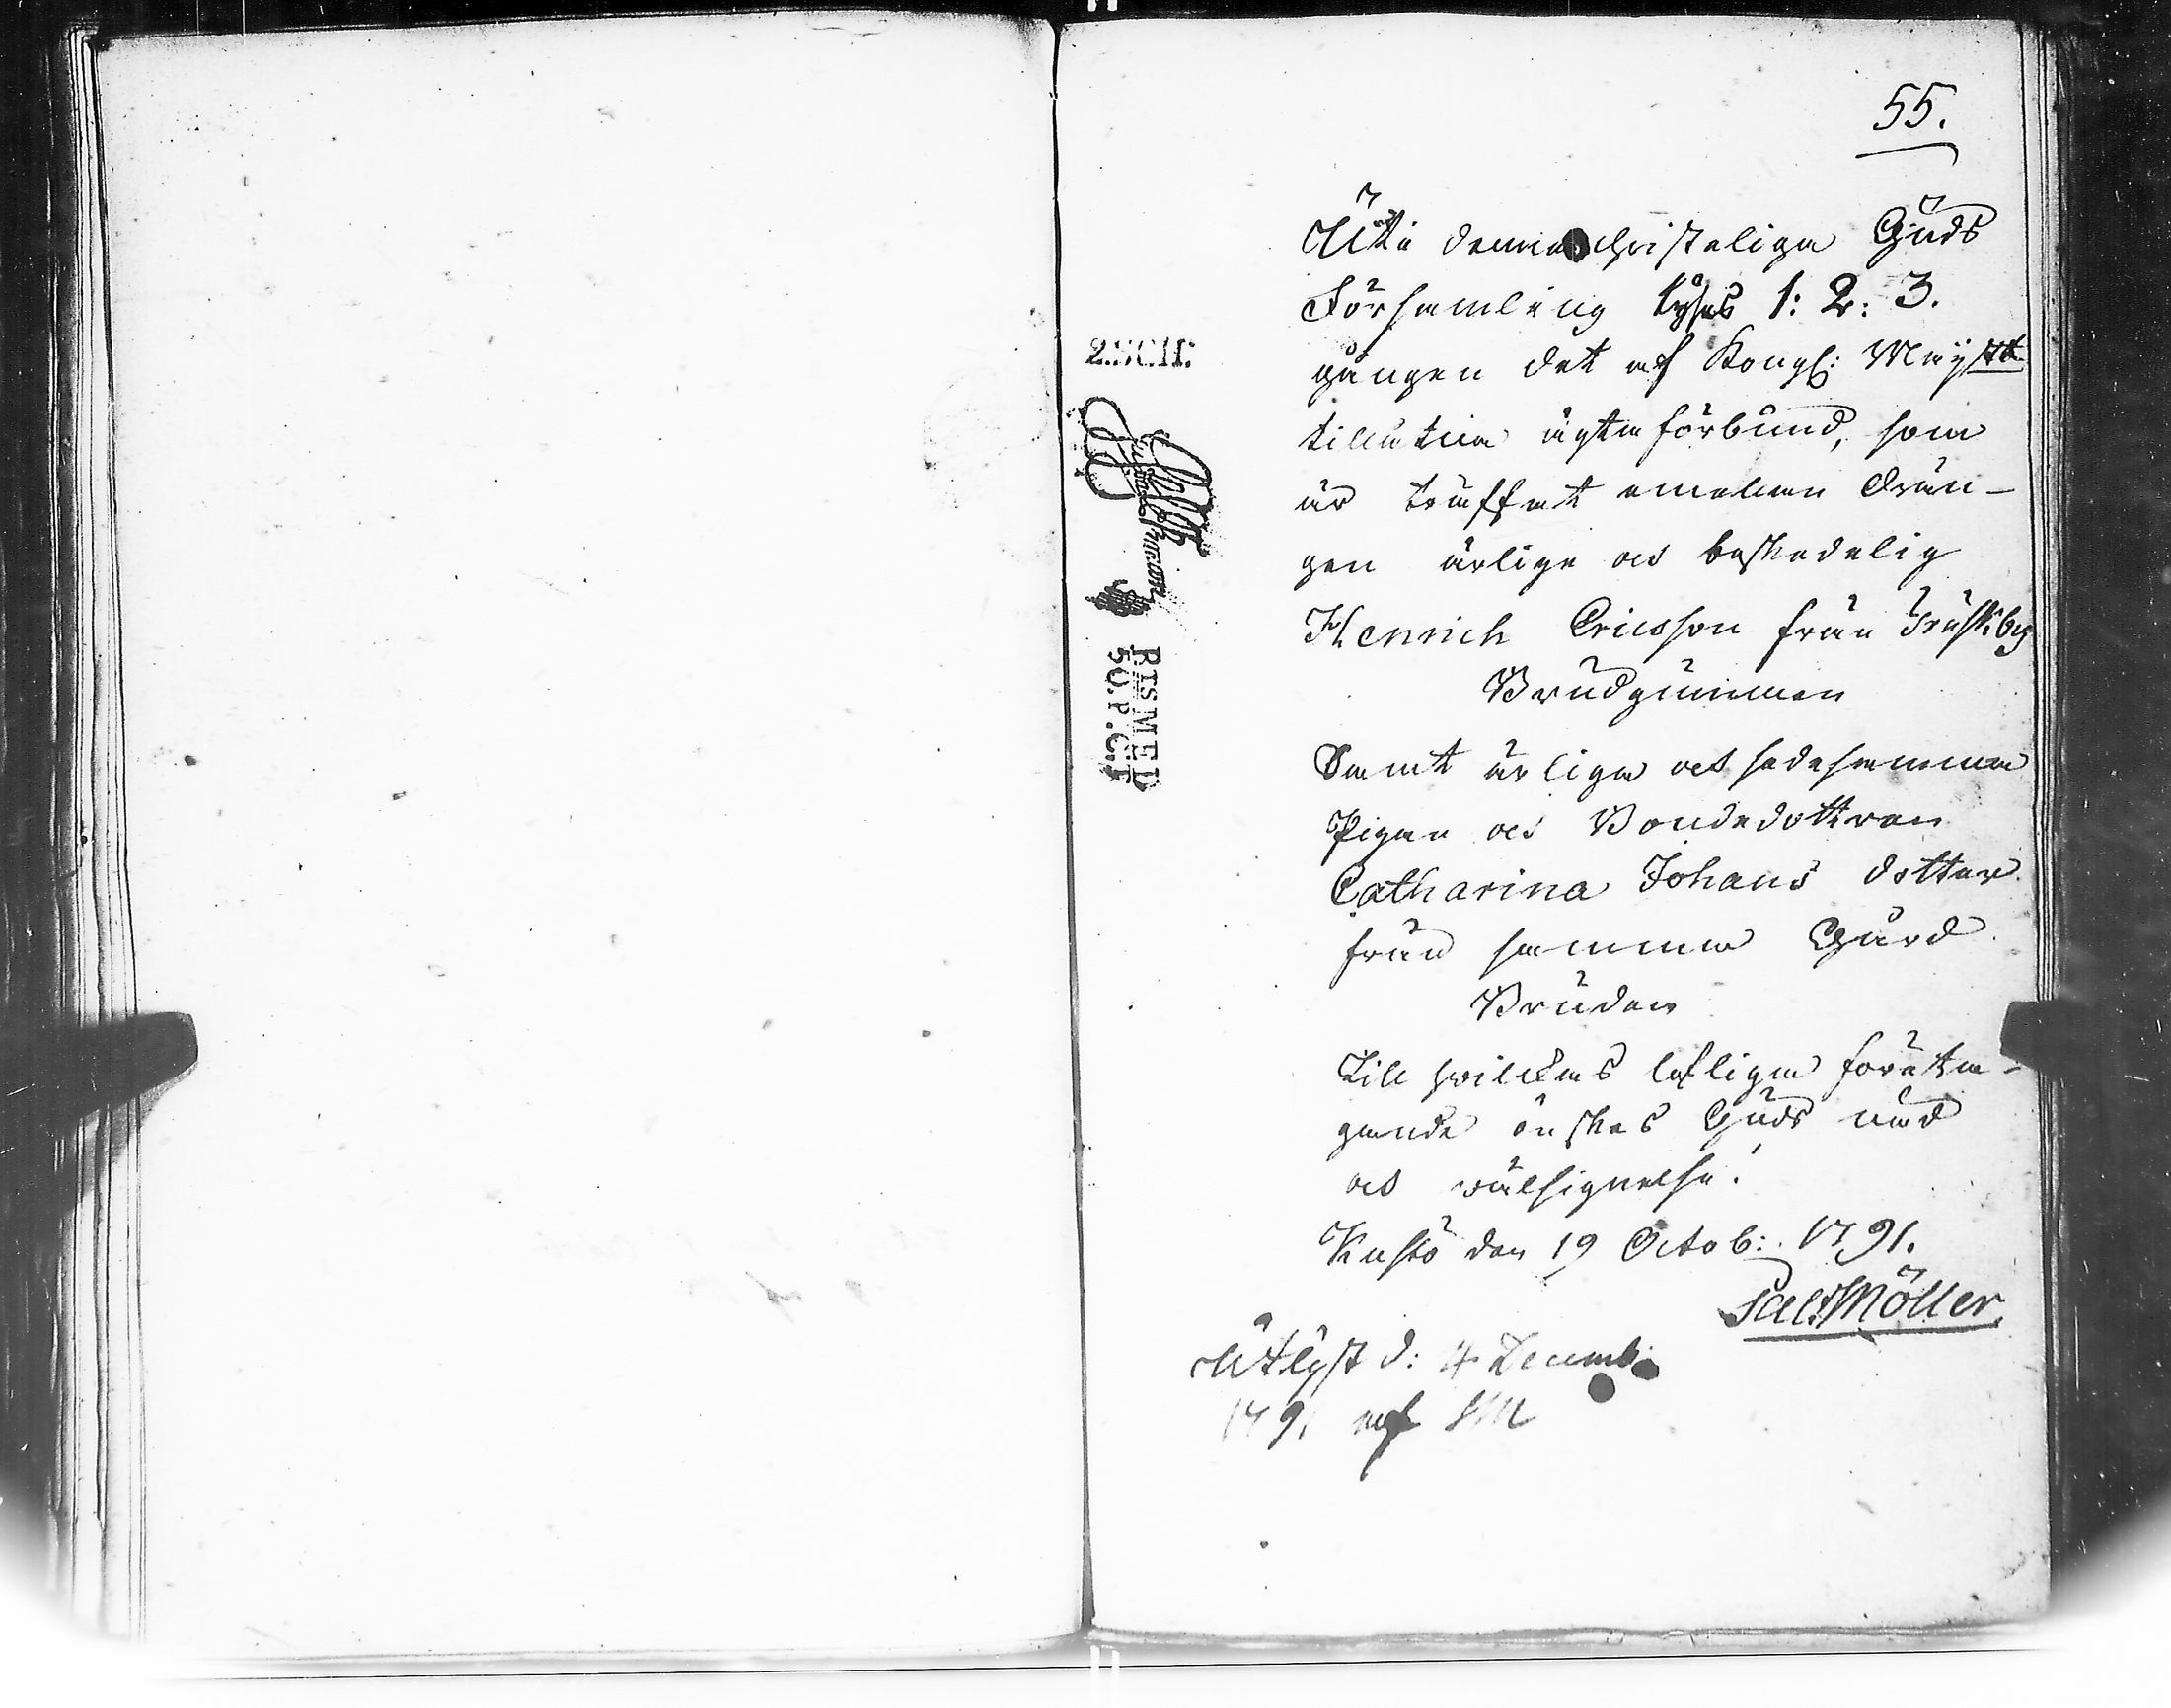 55.
Uti denna Christeliga Guds
Församling lyses 1: 2: 3.
gången det af Kongl: Maÿtt
tillåtna ägta förbund, som
är träffat emellan drän-
gen ärlige och beskedelig
Henrich Ericsson från Träskby
Brudgummen
Samt ärliga och sedesamma
Pigan och Bondedottren
Catharina Johans dotter
från samma Gård
Bruden
Till hvilkas lofliga företa-
gande önskas Guds nåd
och wälsignelse!
Kustö den 19 Octob: 1791.
Sal: Möller
Utlyst d: 4 Decemb:
1791 af SM
2.SCH:
RTSMED
50.P.CT